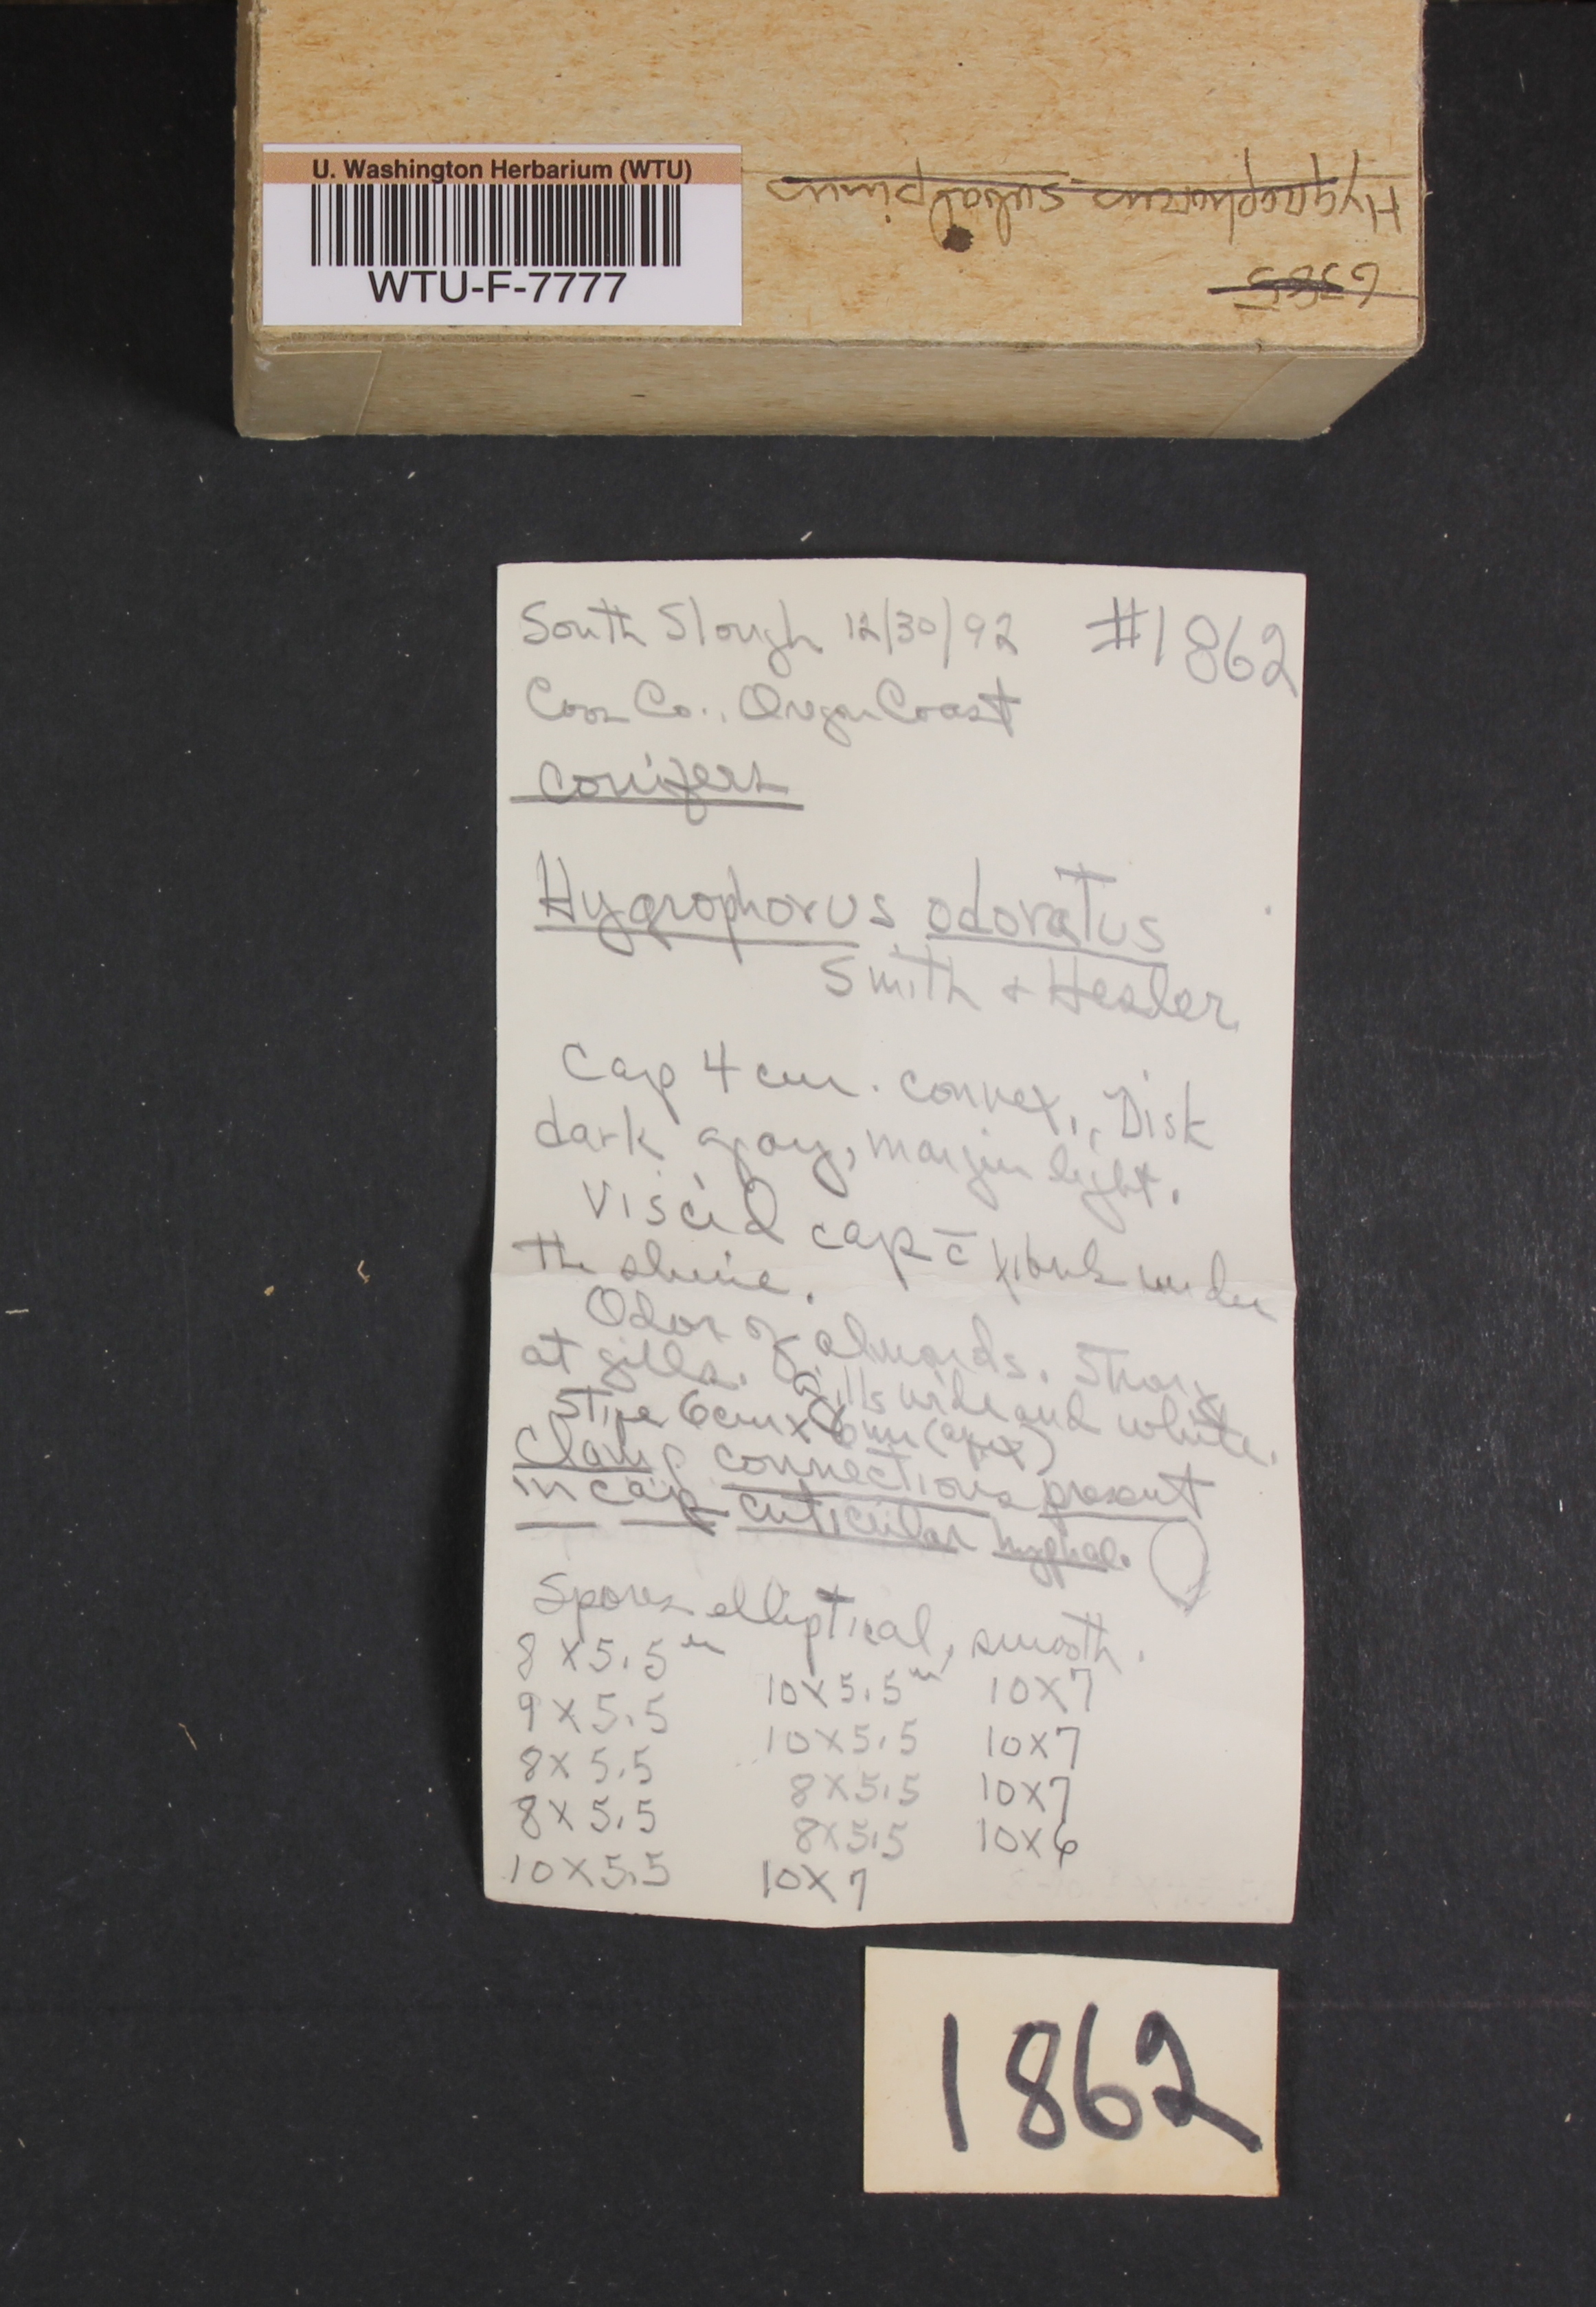 U. Washington Herbarium (WTU)
WTU-F-7777
Hygrophorus subalpinus
6385
South Slough 12/30/92 #1862
Coos Co., Oregon Coast
conifers
Hygrophorus odoratus
Smith + Hesler
Cap 4 cm. convex., Disk
dark gray, margin light.
Viscid cap c̄ fibrils under
the slime.
Odor of almonds. Strong
at gills. Gills wide and white.
Stipe 6cm x 6mm (apex)
Clamp connections present
in cap cuticular hyphae.
Spores elliptical, smooth.
8 x 5.5 m 10x5.5 m 10x7
9 x 5.5 10x5.5 10x7
8x 5.5 8x5.5 10x7
8x 5.5 8x5.5 10x6
10x5.5 10x7
1862